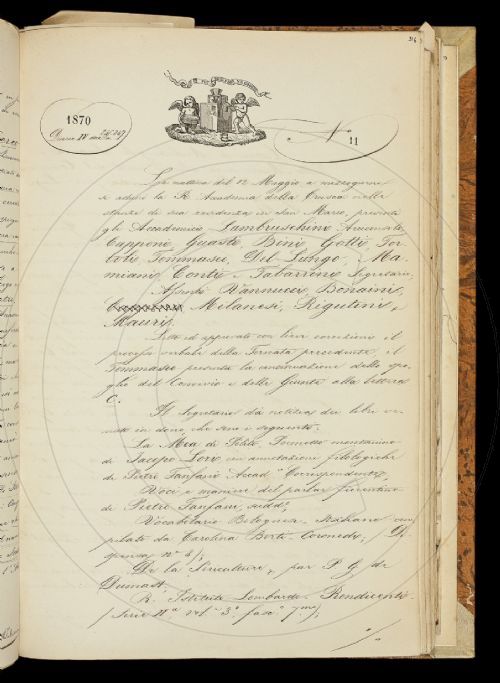 316
1870
N° 11
La mattina del 12 Maggio a mezzogiorno
si adunò la R. Accademia della Crusca nelle
stanze di sua residenza in San Marco, presenti
gli Accademici Lambruschini, Arcivescovo,
Capponi, Guasti, Bini, Gotti, Tor-
toli, Tommaseo, Del Lungo, Ma-
miani, Conti e Tabarrini Segretario.
Assenti Vannucci, Bonaini,
Milanesi, Rigutini,
Mauri.
Letto ed approvato con lieve correzione il
processo verbale della Tornata precedente, il
Tommaseo presenta la continuazione dello spo-
glio del Cesario e della Giunta alla lettera
C.
Il Segretario dà notizia dei libri ve-
nuti in dono, che sono i seguenti:
La Mea di Polito, Frammento montanino
di Jacopo Lori con annotazioni filologiche
di Pietro Fanfani Accad. Corrispondente,
Voci e maniere del parlar fiorentino
di Pietro Fanfani, sudd.
Vocabolario Bolognese-Italiano com-
pilato da Carolina Berti Coronedi; Di-
spensa n° 4;
De la Sericulture, par P. G. de
Dumast,
R. Istituto Lombardo. Rendiconti.
Serie IIª, vol. 3° fasc.